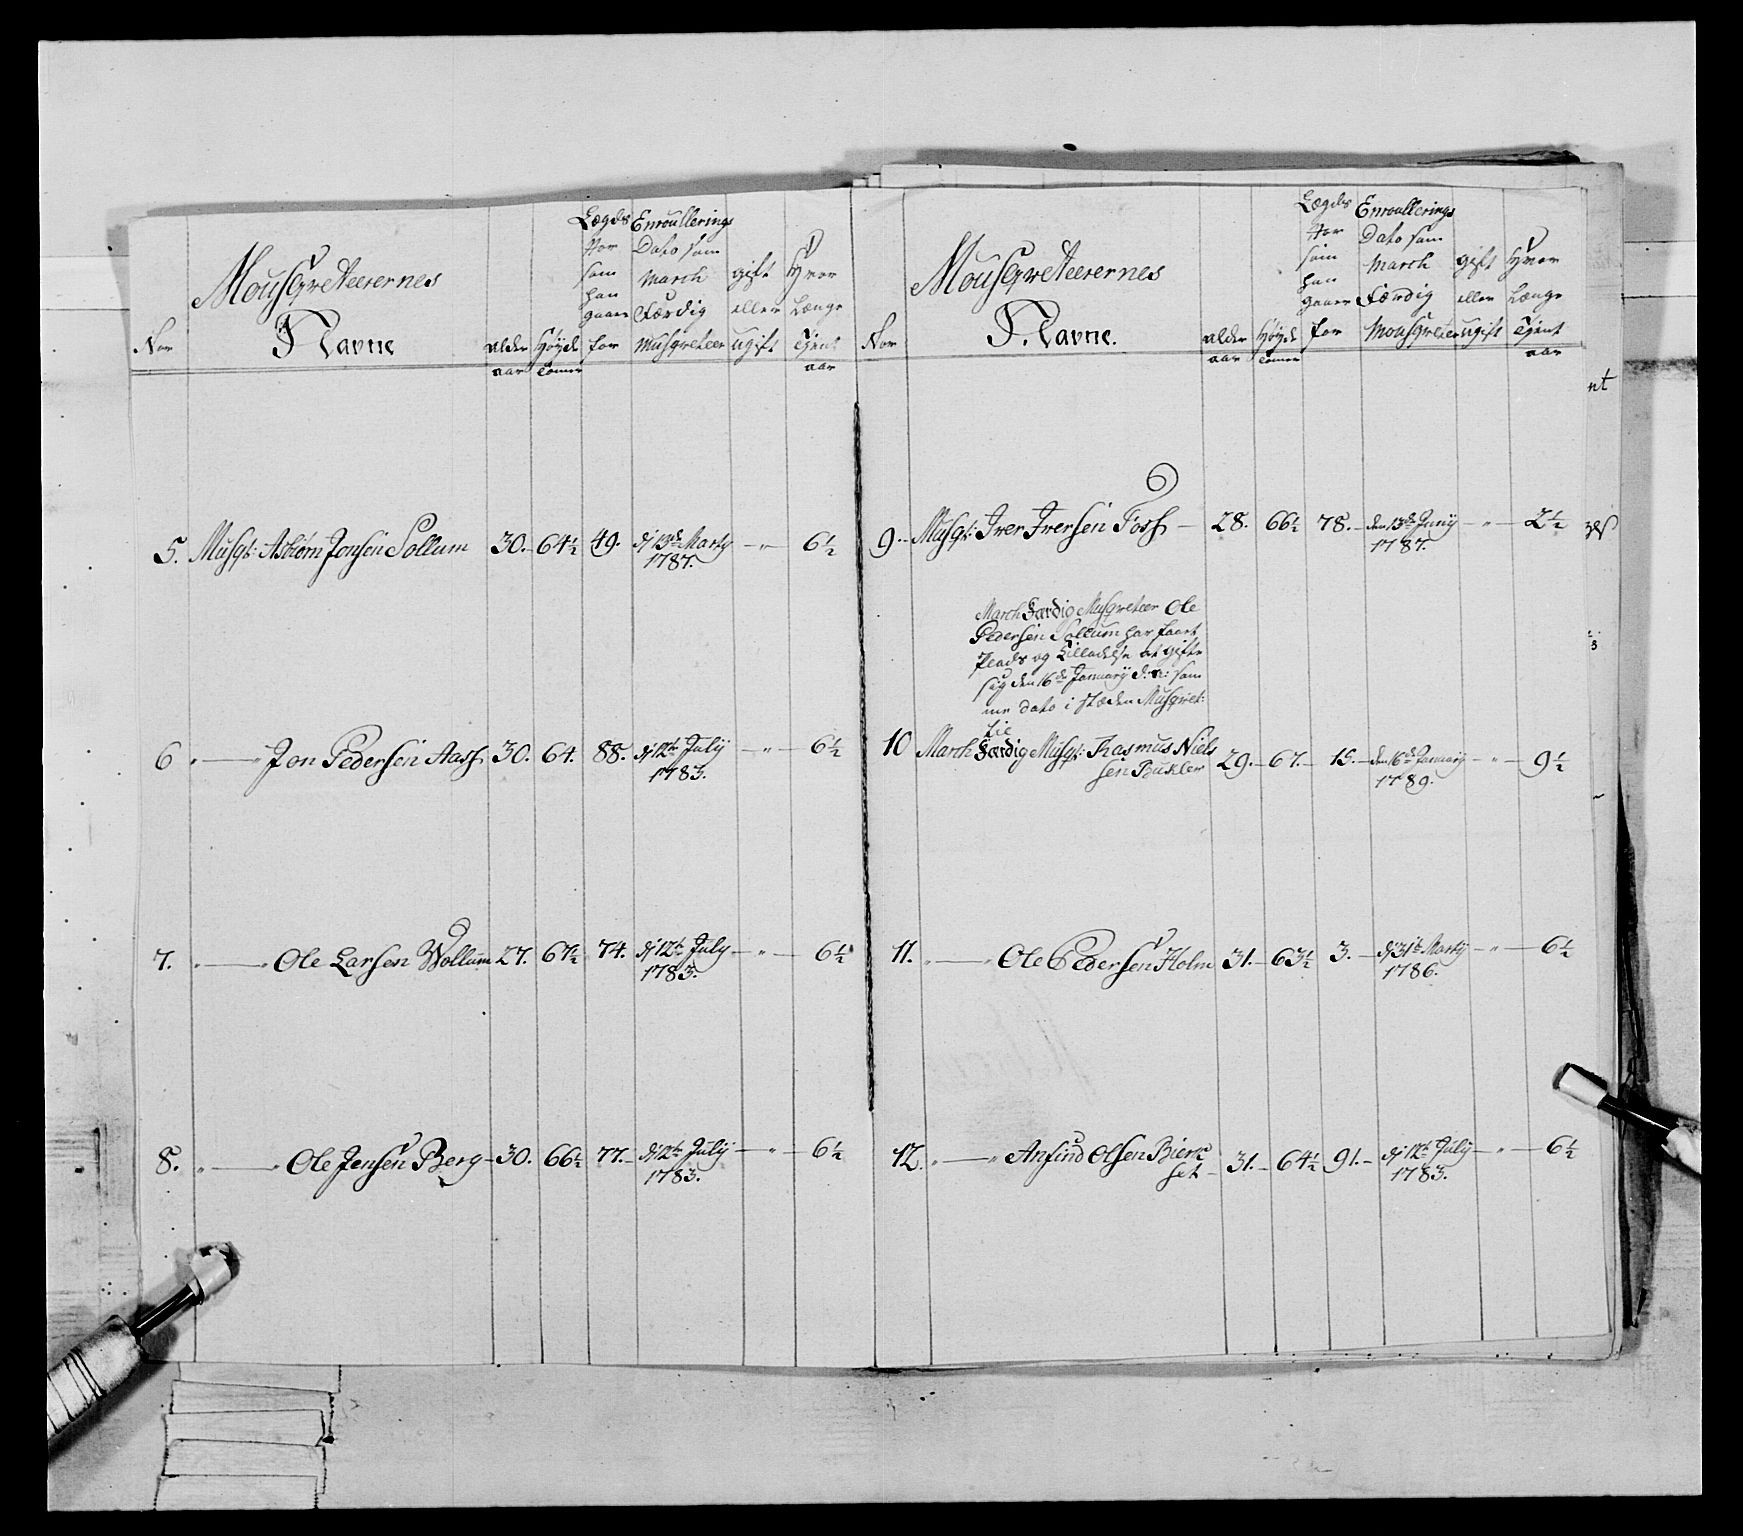 Mousqveteerernes
Navne
Nor
alder
aar
Høyde
Tomer
Lægds
Nor
som
han
gaaer
for
Enroullerings
Dato som
March
Færdig
Musqveteer
gift
eller
ugift
Hvor
Længe
Tient
aar
5. Musqt: Asbiørn Jonsen Sollum 30. 64½ 49. dj 13de Marty - " - 6½
1787.
6 " — " Jon Pedersen Aass 30. 64. 88. dj 12te July - " - 6½
1783.
7. " — " Ole Larsen Wollum 27. 67½ 74. dj 12te July - " - 6½
1783.
8. " — " Ole Jensen Berg 30. 66½ 77. dj 12te July - " - 6½
1783.
Mousqveteerernes
Navne.
Nor
alder
aar
Høyde
Tomer
Lægds
Nor
som
han
gaaer
for
Enroullerings
Dato som
March
Færdig
Mousqveteer
gift
eller
ugift
Hvor
Længe
Tient
aar
9. Musqt: Iver Iversen Foss 28. 66½ 78. den 13de Juny - " - 2½
1787.
March Færdig Musqveteer Ole
Pedersen Sollum har faaet
Plads og Tilladelse at gifte
sig den 16de January d: a: sam
me dato i stæden Musqvet:
til
10 March Færdig Musqt: Rasmus Niel
sen Bukler 29. 67. 15. den 16de January - " - 9½
1789.
11. " — " Ole Pedersen Holm 31. 63½ 3. dj 31te Marty - " - 6½
1786.
12. " — " Anfind Olsen Bierk
set 31. 64½ 91. dj 12te July - " - 6½
1783.
nt